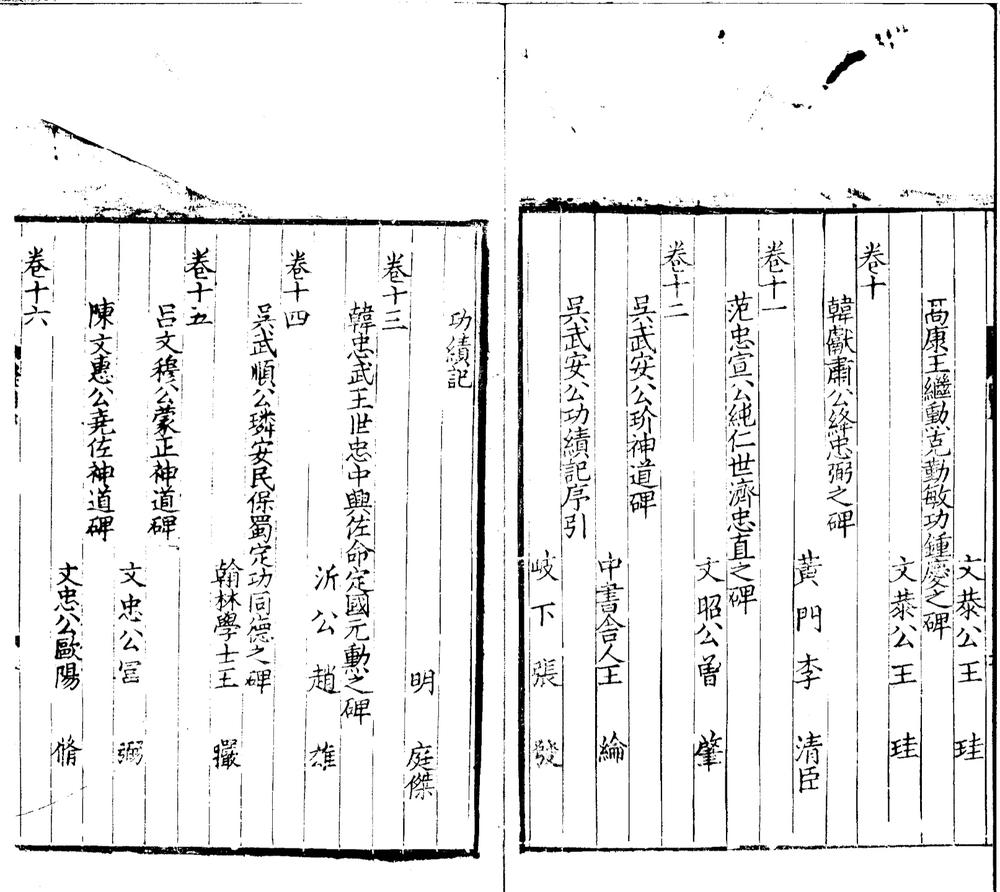 文恭公王珪
高康王繼勳克勤敏功鍾慶之碑
文恭公王珪
卷十
韓獻肅公絳忠弼之碑
黃門李清臣
卷十一
范忠宣公純仁世濟忠直之碑
文昭公曾肇
卷十二
吳武安公玠神道碑
中書舍人王綸
吳武安公功績記序引
岐下張發
功績記
明庭傑
卷十三
韓忠武王世忠中興佐命定國元勳之碑
沂公趙雄
卷十四
吳武順公璘安民保蜀定功同德之碑
翰林學士王曮
卷十五
呂文穆公蒙正神道碑
文忠公富弼
陳文惠公堯佐神道碑
文忠公歐陽脩
卷十六